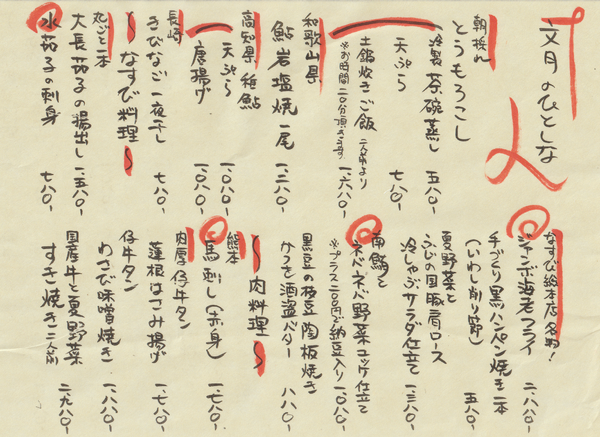 文月のひとしな
朝採れ
とうもろこし
(冷製)茶碗蒸し 五八〇-
天ぷら 七八〇-
土鍋炊きご飯 二人前より 一、六八〇-
※お時間二〇分頂きます
和歌山県
鮎岩塩焼 一尾 一、二八〇-
高知県 稚鮎
天ぷら 一、〇八〇-
唐揚げ 一、〇八〇-
長崎
きびなご一夜干し 七八〇-
〜なすび料理〜
丸ごと一本
大長茄子の揚出し 一、五八〇-
水茄子の刺身 七八〇-
なすび総本店名物!
ジャンボ海老フライ 二、八八〇-
手づくり黒ハンペン焼き 一本 五八〇-
(いわし削り節)
夏野菜と
ふじの国豚肩ロース
冷しゃぶサラダ仕立て 一、三八〇-
南鮪と
ネバネバ野菜ユッケ仕立て 一、〇八〇-
※プラス二〇〇円で納豆入り
黒豆の枝豆陶板焼き
かつを酒盗バター 八八〇-
〜肉料理〜
熊本
馬刺し(赤身) 一、七八〇-
肉厚仔牛タン
蓮根はさみ揚げ 一、七八〇-
仔牛タン
わさび味噌焼き 一、八八〇-
国産牛と夏野菜
すき焼き 二人前 二、九八〇-